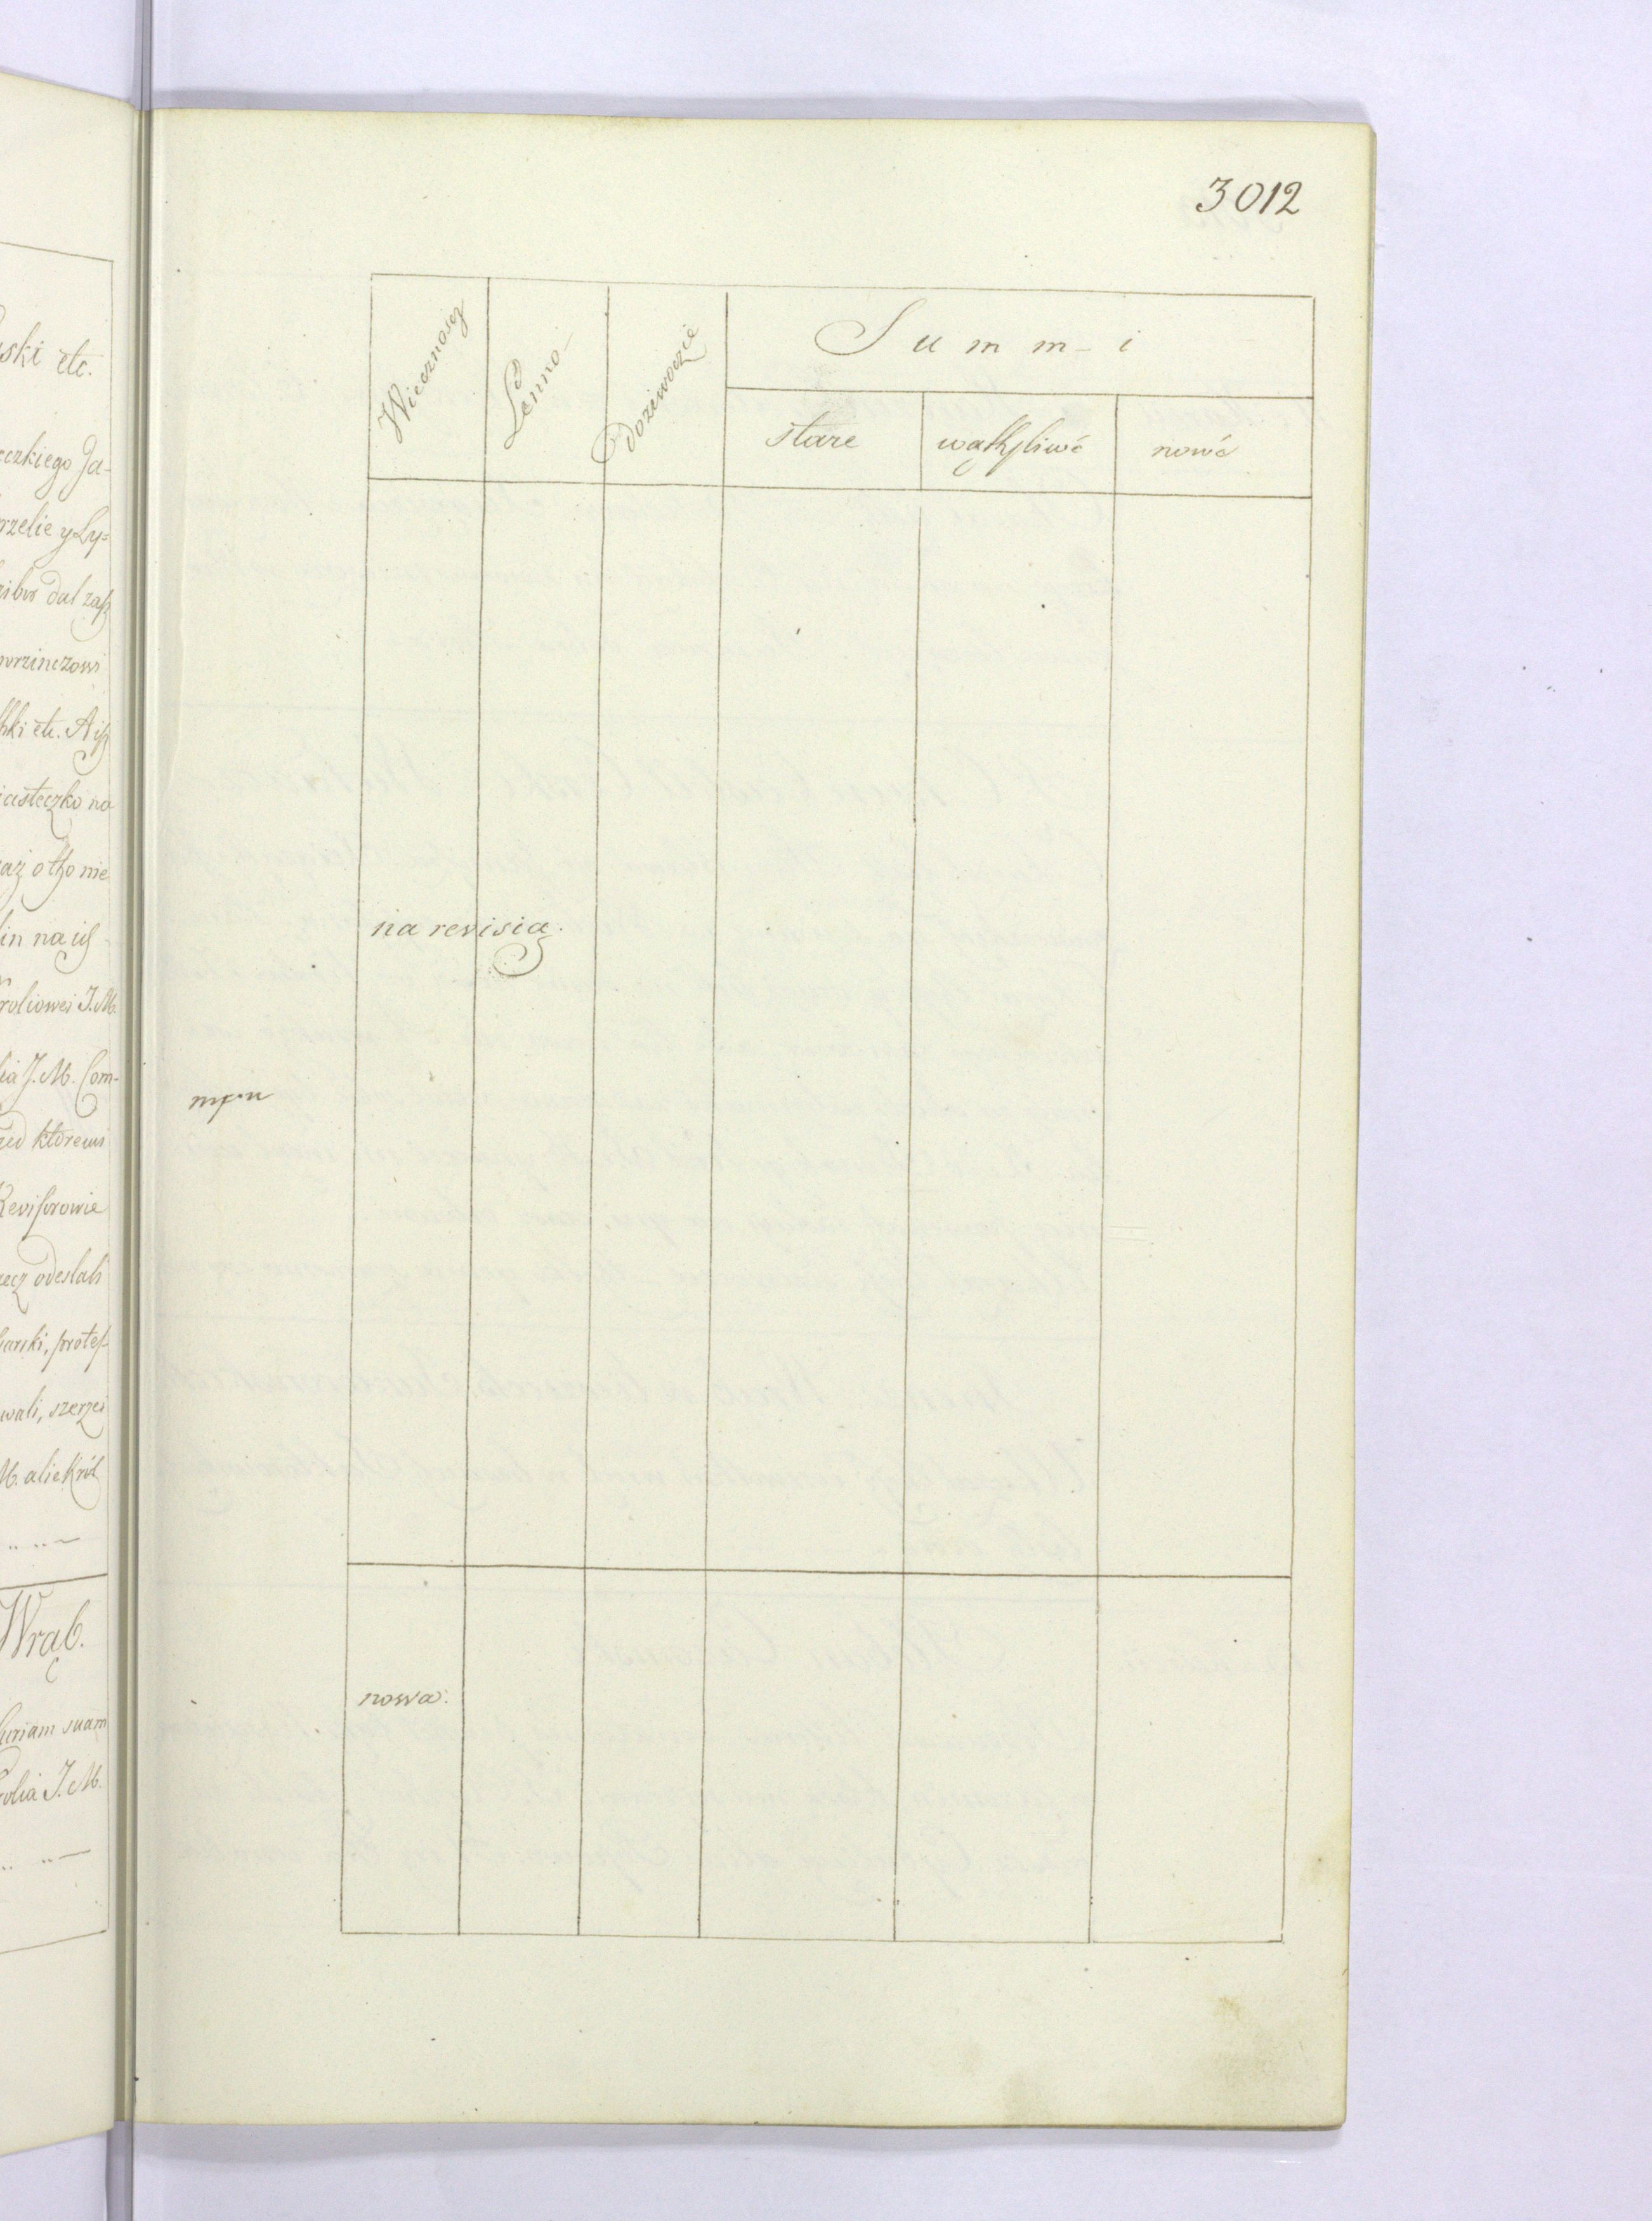 ski etc.
czkiego Ja-
rzelie y Ly=
ribus dal zasz
wrzinczowi
hki etc. A isz
iasteczko na
in na isz
roliowei J.M.
lia J.M. Com-
zed ktoremi
Revisorowie
ecz odeslali
arski, protes-
wali, szerzei
M. alie Król
Wrąb.
Curiam suam
rolia J.M.
3012
Wiecznoscz
Lenno
Doziwoczie
Summ-i
stare
wąthpliwé
nowé
na revisią.
nowa: